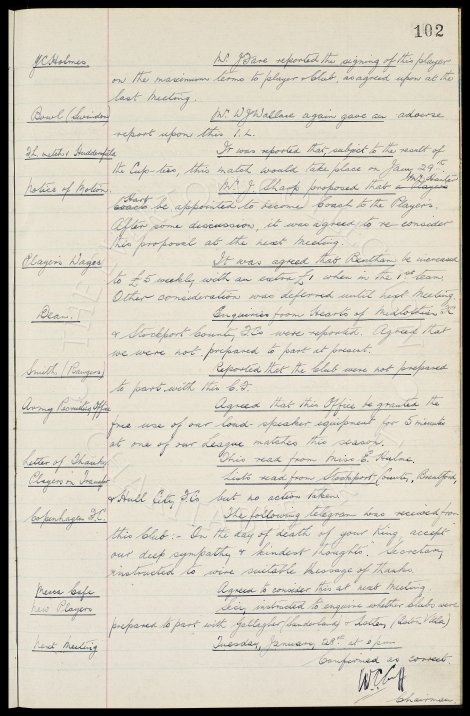 102
J C Holmes Mr. J Bare reported the signing of this player
on the maximum terms to player & Club, as agreed upon at the
last Meeting.
Bowl (Swindon) Mr. W J Wallace again gave an adverse
report upon this I.L.
F.L. match v Huddersfield It was reported that, subject to the result of
the Cup-ties, this match would take place on Jany 29th
Notice of Motion. Mr. J. Sharp proposed that
be appointed to become Coach to the Players.
After some discussion, it was agreed to re-consider
this proposal at the next Meeting.
Players Wages It was agreed that Bentham be increased
to £5 weekly with an extra £1 when in the 1st team.
Other consideration was deferred until next Meeting.
Dean. Enquiries from Hearts of Midlothian FC
& Stockport County F.Co were reported. Agreed that
we were not prepared to part at present.
Smith (Rangers) Reported that the Club were not prepared
to part with this C.F.
Army Recruiting Office Agreed that this Office be granted the
free use of our loud-speaker equipment for 5 minutes
at one of our League matches this season.
Letter of Thanks This read from Miss E. Hulme.
Players on Transfer Lists read from Stockport County, Brentford,
& Hull City F.Co but no action taken.
Copenhagen F.C. The following telegram was received from
this Club:- On the day of death of your King accept
our deep sympathy & kindest thoughts. Secretary
instructed to wire suitable Message of thanks.
Mecca Cafe Agreed to consider this at next Meeting
New Players Secy. instructed to enquire whether Clubs were
prepared to part with Gallagher (Sunderland) & (Aston Villa)
Next Meeting Tuesday, January, 28th at
Confirmed as correct.
W. C. Cuff
Chairman